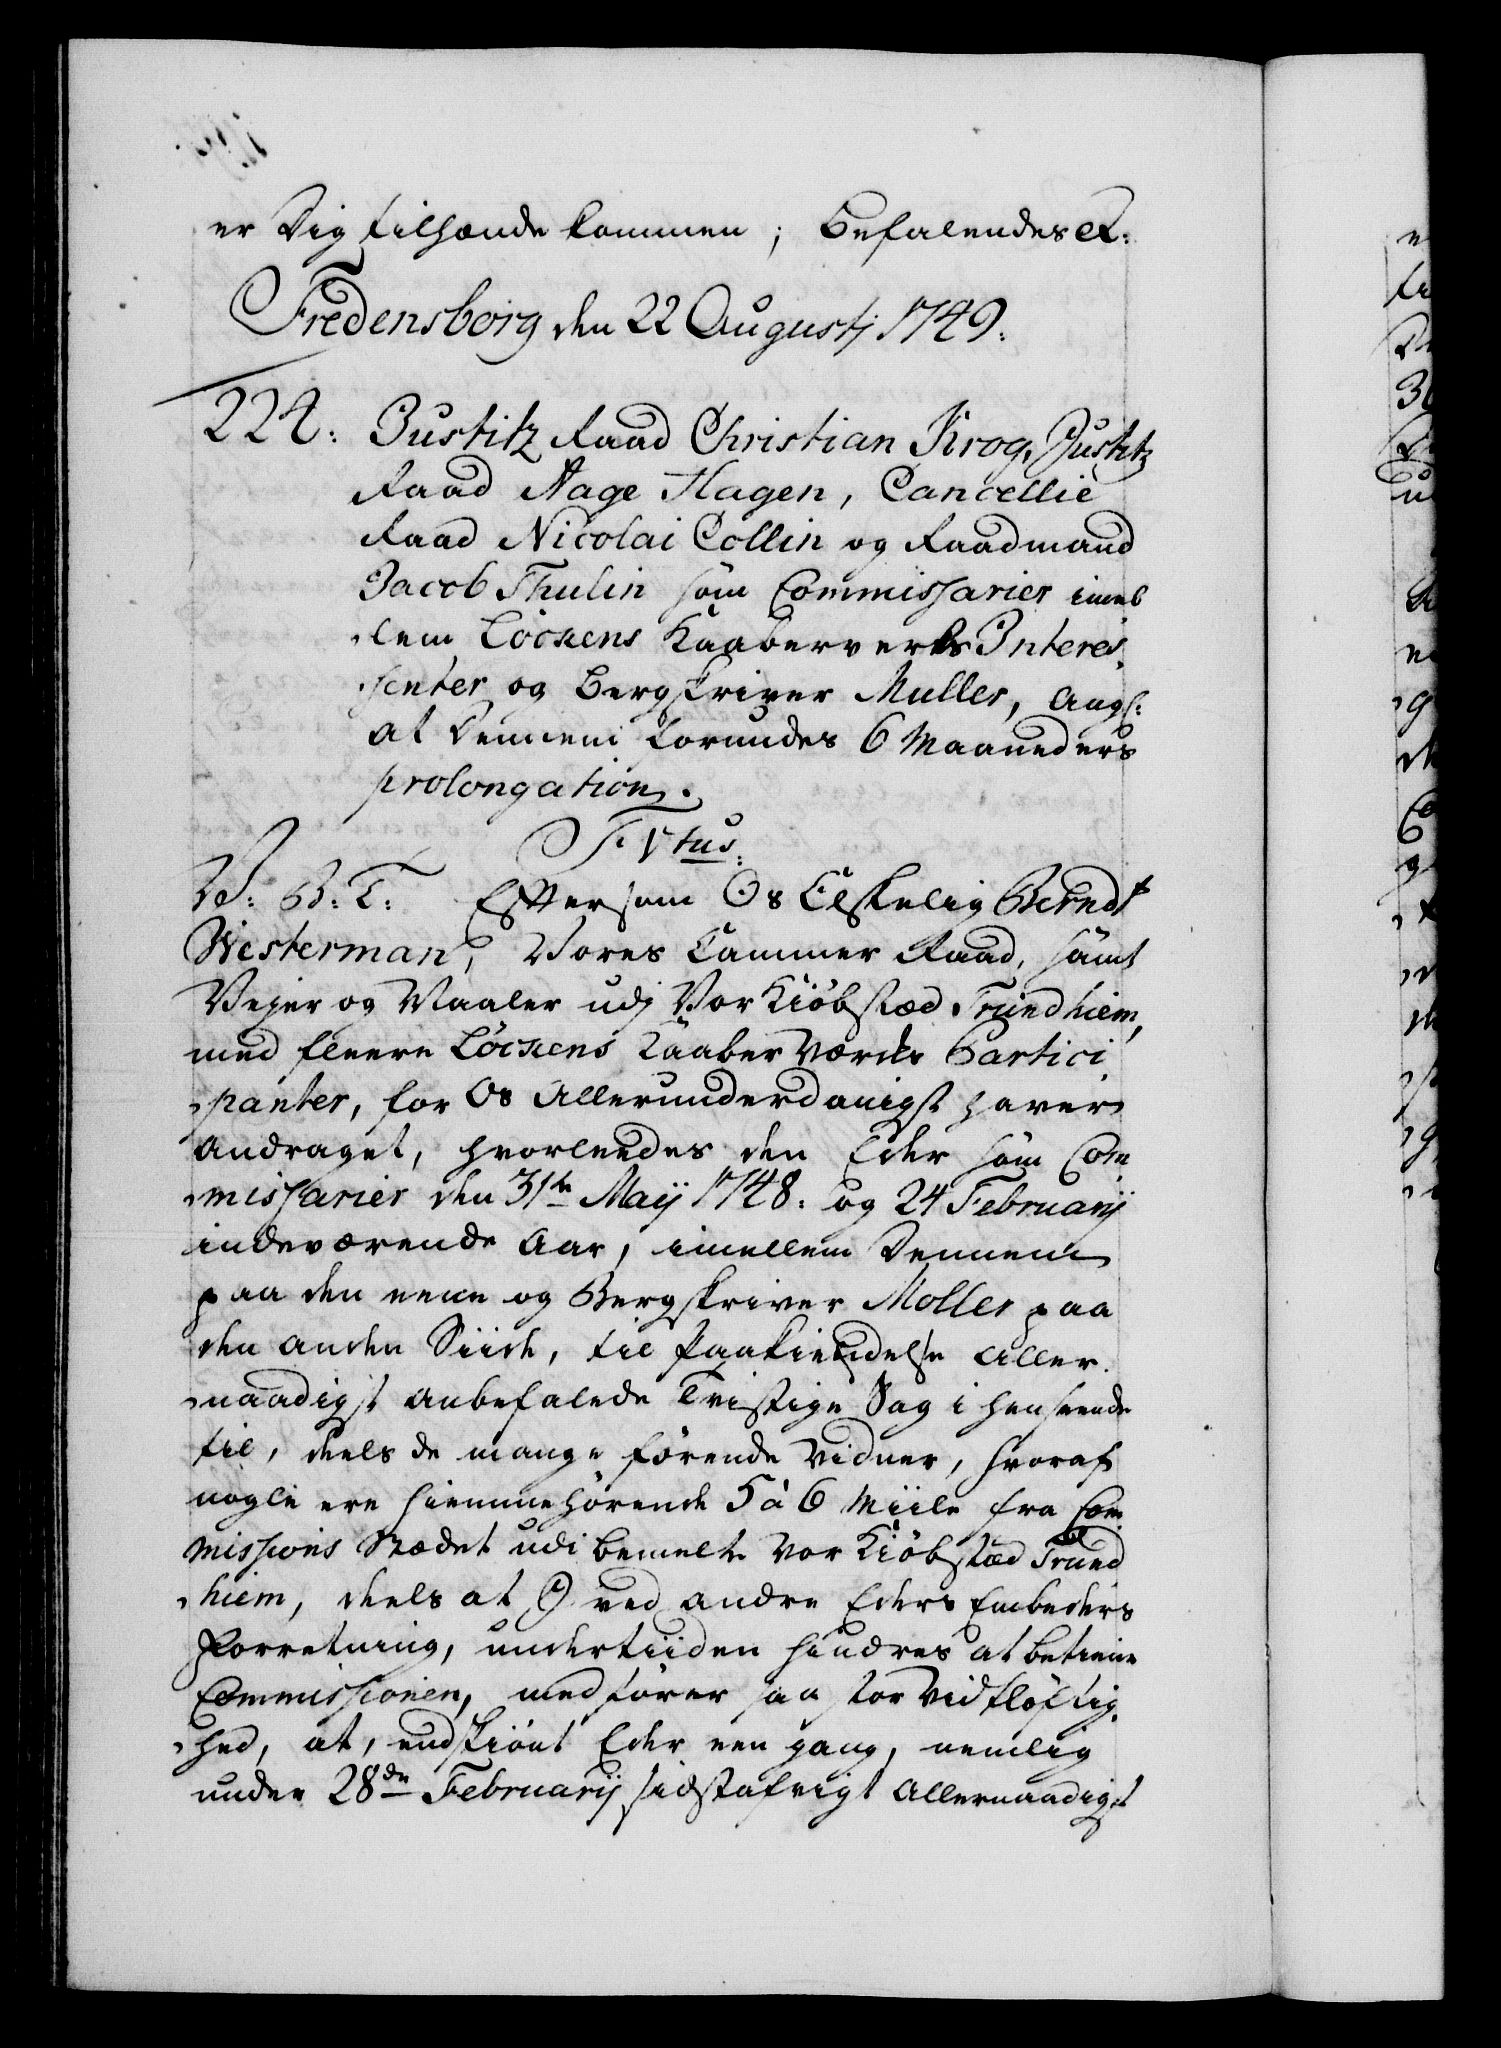 er Dig tilhænde kommen; Befalendes etc:
Fredensborg den 22 Augustj 1749.
224: Justitz Raad Christian Krog, Justitz
Raad Aage Hagen, Cancellie
Raad Nicolai Collin og Raadmand
Jacob Thulin som Commissarier imel
lem Løckens Kaaberverks Interes
senter og Bergskriver Muller, ang:
at Dennem forundes 6 Maaneders
prolongation.
F: Vtus.
V: G: T: Eftersom Os Elskelig Berndt
Westerman, Vores Cammer Raad, samt
Vejer og Maaler udj Vor Kiøbstæd Trundhiem,
med fleere Løckens Kaaber Værcks Partici
panter, for Os Allerunderdanigst haver
andraget, hvorledes den Eder som Com
missarier den 31te Maij 1748. og 24 Februarij
indeværende Aar, imellem Dennem
paa den eene og Bergskriver Moller paa
den anden Siide, til Paakiendelse Aller
naadigst anbefalede Tvistige Sag i henseende
til, deels de mange førende Vidner, hvoraf
nogle ere hiemmehørende 5 à 6 Miile fra Com
missions Stædet udi bemelte Vor Kiøbstæd Trund
hiem, deels at I ved andre Eders Embeders
Forretning, undertiiden hindres at betiene
Commissionen, medfører saa stor Vidtløftig
hed, at, endskiønt Eder een gang, nemlig
under 28de Februarij sidstafvigt Allernaadigst